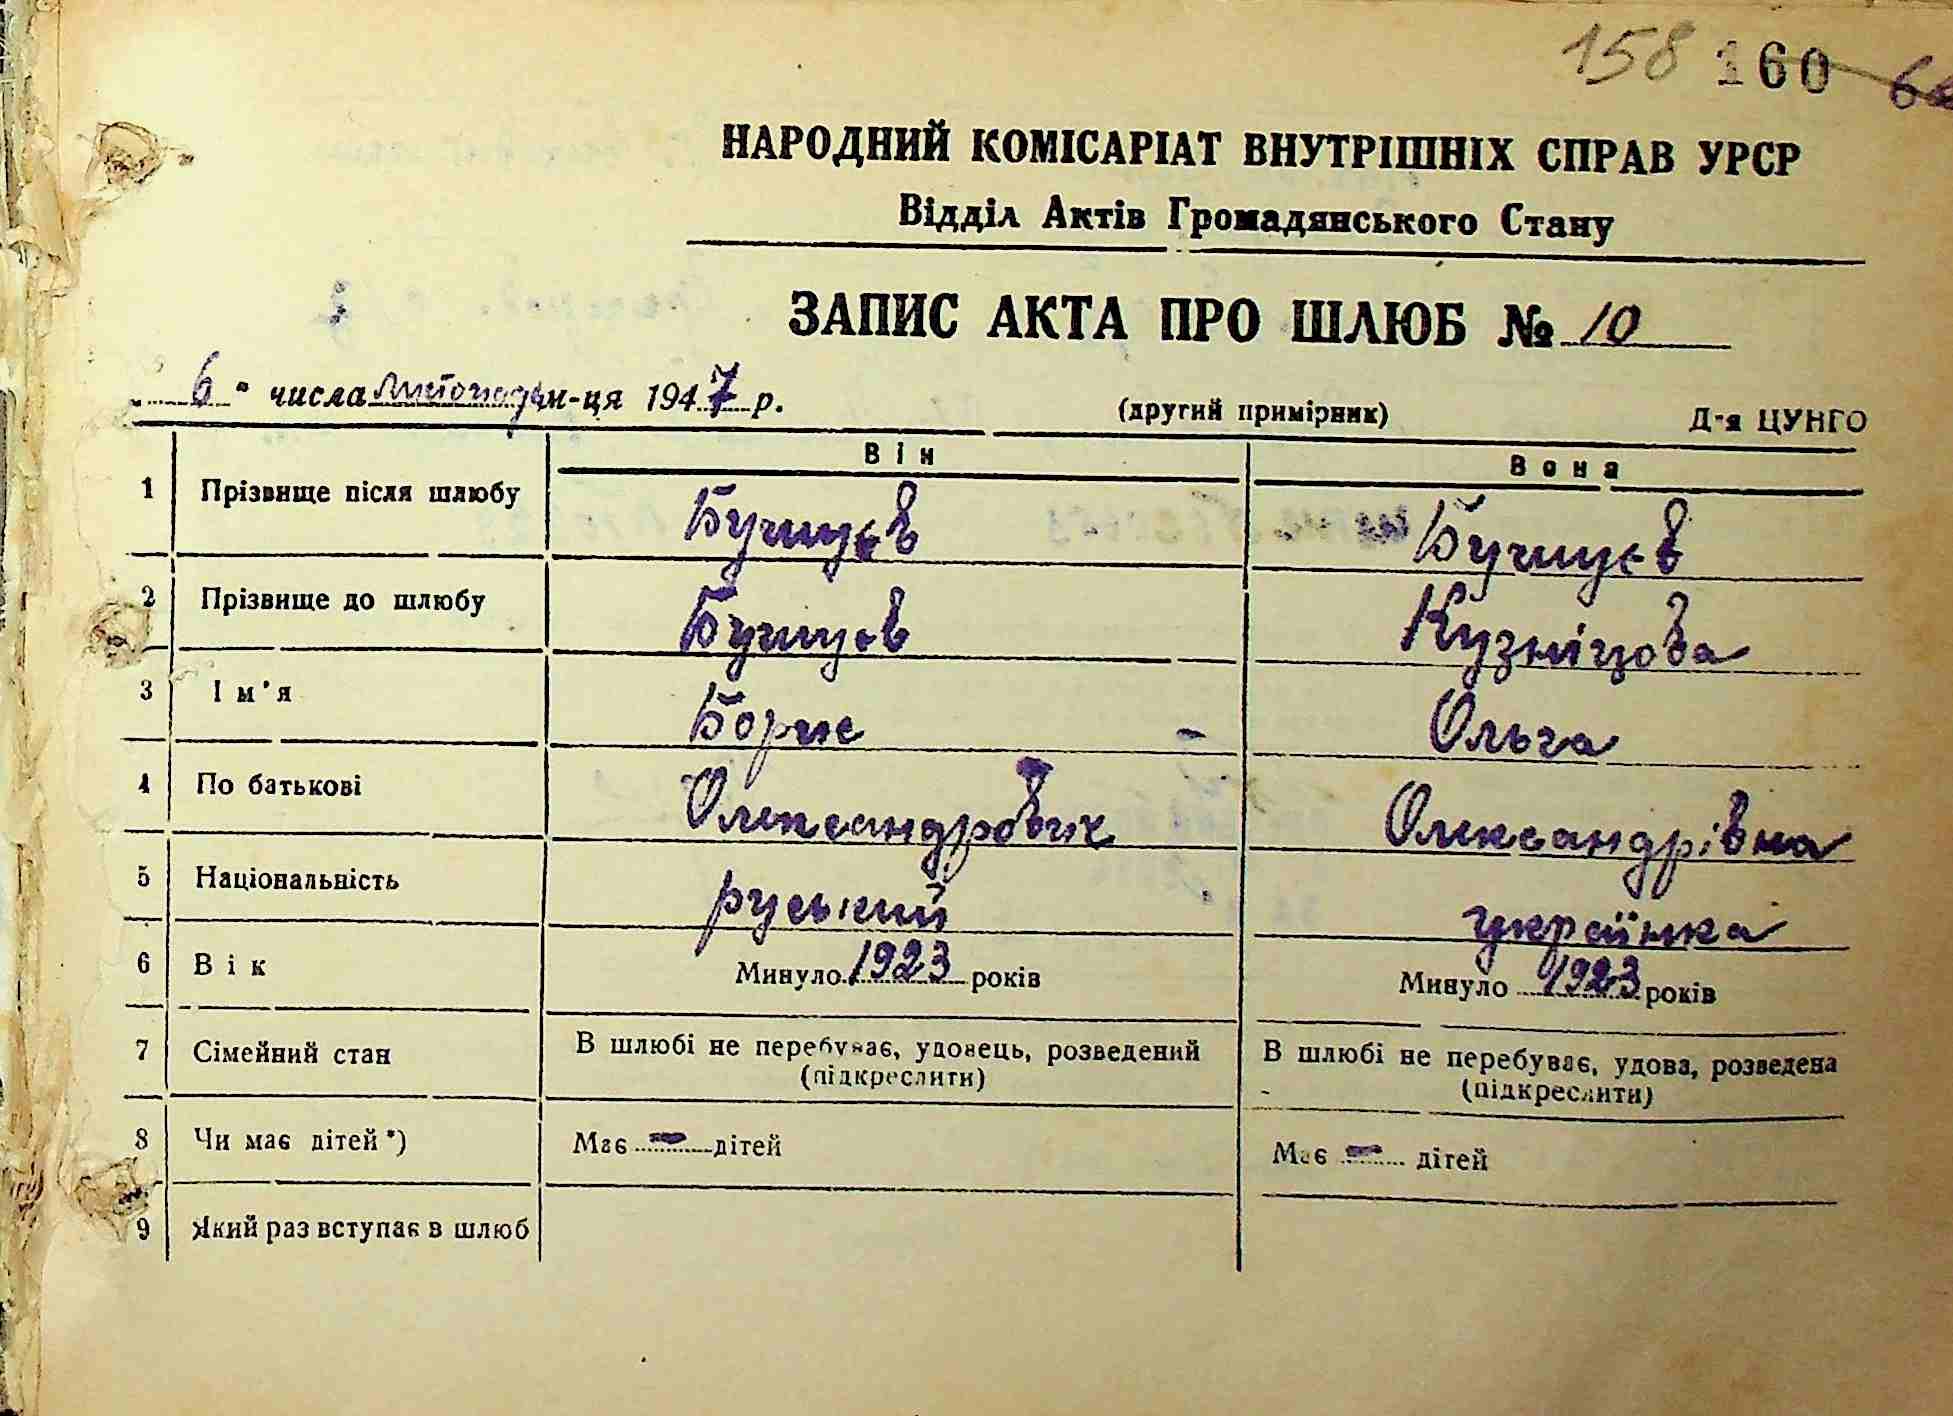 158 160
НАРОДНИЙ КОМІСАРІАТ ВНУТРІШНІХ СПРАВ УРСР
Відділ Актів Громадянського Стану
ЗАПИС АКТА ПРО ШЛЮБ № 10
6 " числа листопада м-ця 1947 р. (другий примірник) Д-я ЦУНГО
Він Вона
1 Прізвище після шлюбу
2 Прізвище до шлюбу Кузніцова
3 Ім'я Борис - Ольга
4 По батькові Олександрович Олександрівна
5 Національність руський українка
6 Вік Минуло 1923 років Минуло 1923 років
7 Сімейний стан В шлюбі не перебуває, удовець, розведений В шлюбі не перебуває, удова, розведена
(підкреслити) (підкреслити)
8 Чи має дітей*) Має — дітей Має — дітей
9 Який раз вступає в шлюб